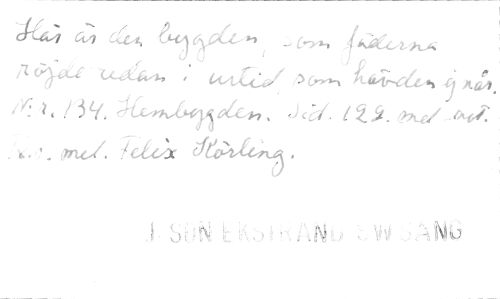 Här är den bygden, som fäderna
röjde redan i urtid, som hävden ej når.
N:r. 134. Hembygden. Sid. 129. med ant.
K.r. mel. Felix Körling.
J. SON EKSTRAND EW SÅNG